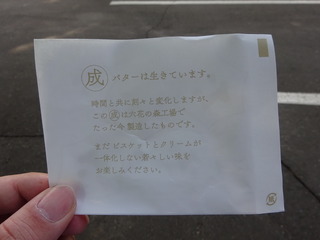 成 バターは生きています。
時間と共に刻々と変化しますが、
この成は六花の森工場で
たった今製造したものです。
まだビスケットとクリームが
一体化しない若々しい味を
お楽しみください。